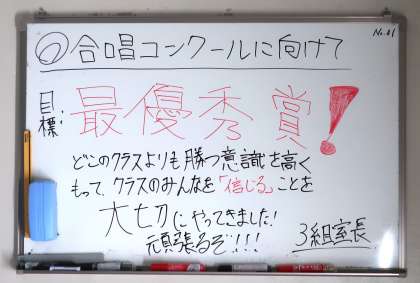 合唱コンクールに向けて
No.41
目標:最優秀賞!
どこのクラスよりも勝つ意識を高く
もって、クラスのみんなを「信じる」ことを
大切にやってきました!
頑張るぞ!!!
3組室長